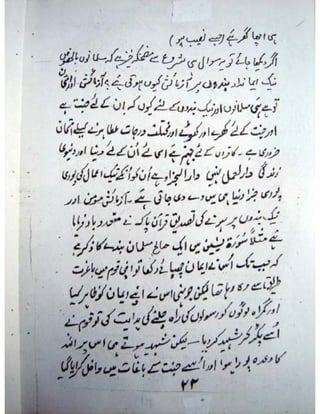 ہی اچھا گھر ہے (جسے نصیب ہو)
اگر دیکھا جائے تو یہ سوال ہی شروع سے مضحکہ خیز ہے کہ مسلمانوں بالخصوص
نیک ایماندار بندوں پر آزمائش کیوں ہوتی ہے؟ آزمائش اور امتحان
تو ہے ہی مسلمانوں اور نیک بندوں کے لئے کیوں کہ ان کے لئے جنت ہے
اور جنت کے لئے کھرے اور کھوٹے اور مختلف درجات عطا ہونے کیلئے امتحان
ضروری ہے۔ کافروں کے لئے جہنم ہے اسی لئے اُن کے لئے دنیا اور دنیوی
زندگی دارالعمل نہیں دارالجزاء ہے اُن کو اُنکے نیک اعمال کی پوری
پوری جزا دنیا ہی میں دے دی جاتی ہے۔ آزمائش مومن اور
نیک بندوں پر ہونے کی تصدیق قرآن پاک نے متعدد بار فرمایا
ہے مثلاً سورۃ یٰسین میں ایک صالح مسلمان بندے کا ذکر ہے
کہ جب تک اُس نے ایمان چھپائے رکھا تو اپنی قوم میں باعزت
طریقہ سے رہ رہا تھا لیکن جونہی اس نے اپنے ایمان کو ظاہر کیا
اور گمراہ لوگوں کو رسولوں کی راہ چلنے کی ہدایت کی تو قوم نے
اُسے پکڑ کر شہید کر دیا۔ لیکن شہید ہوتے ہی اس پر اللہ
کا وعدہ پورا ہوا اور اُسے جنت کے باغات میں داخل کرایا گیا
۲۲